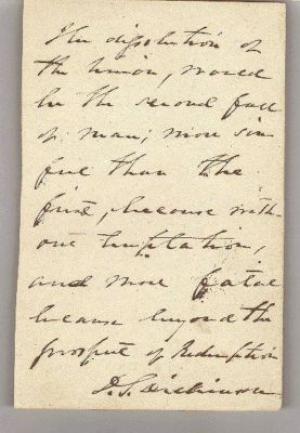 The dissolution of
the Union, would
be the second fall
of man; more sin
ful than the
first, because with-
out temptation,
and more fatal
because beyond the
prospect of Redemption
D. S. Dickinson